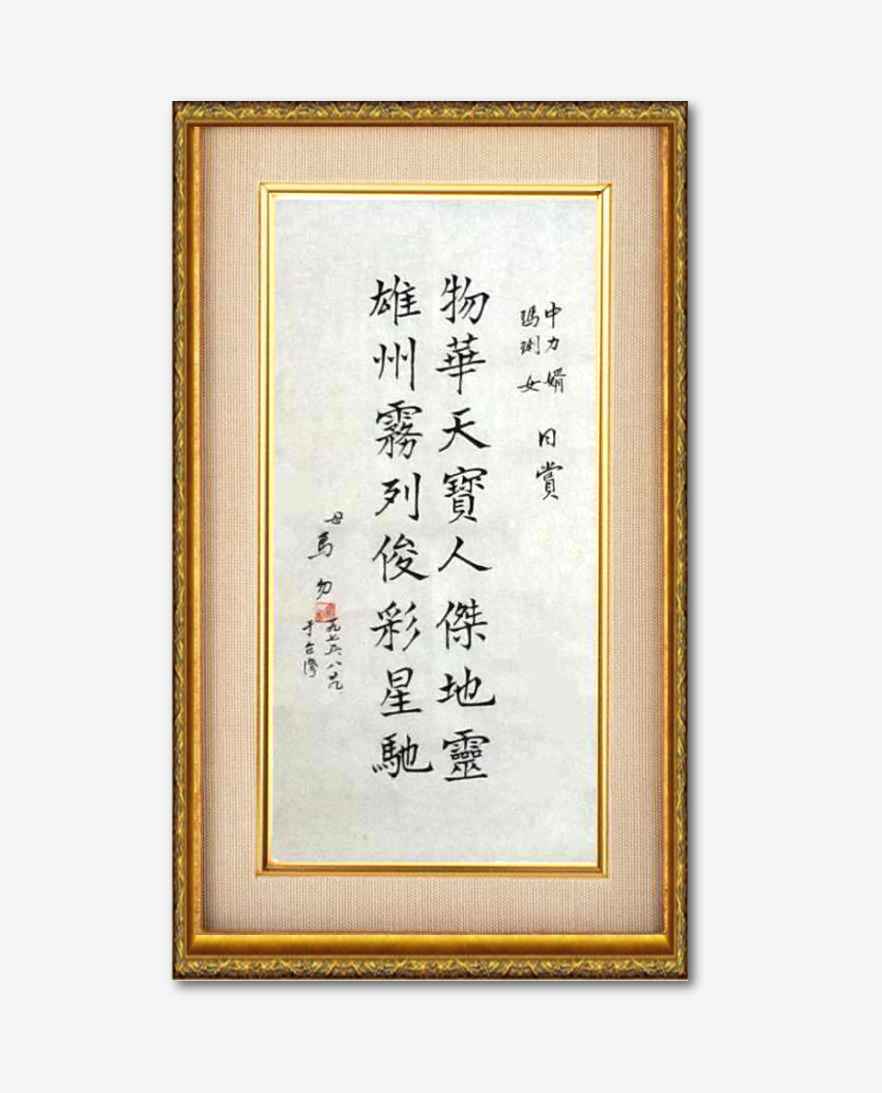 中力婿 同賞
瑪琍女
物華天寶人傑地靈
雄州霧列俊彩星馳
母馬勿
于台灣